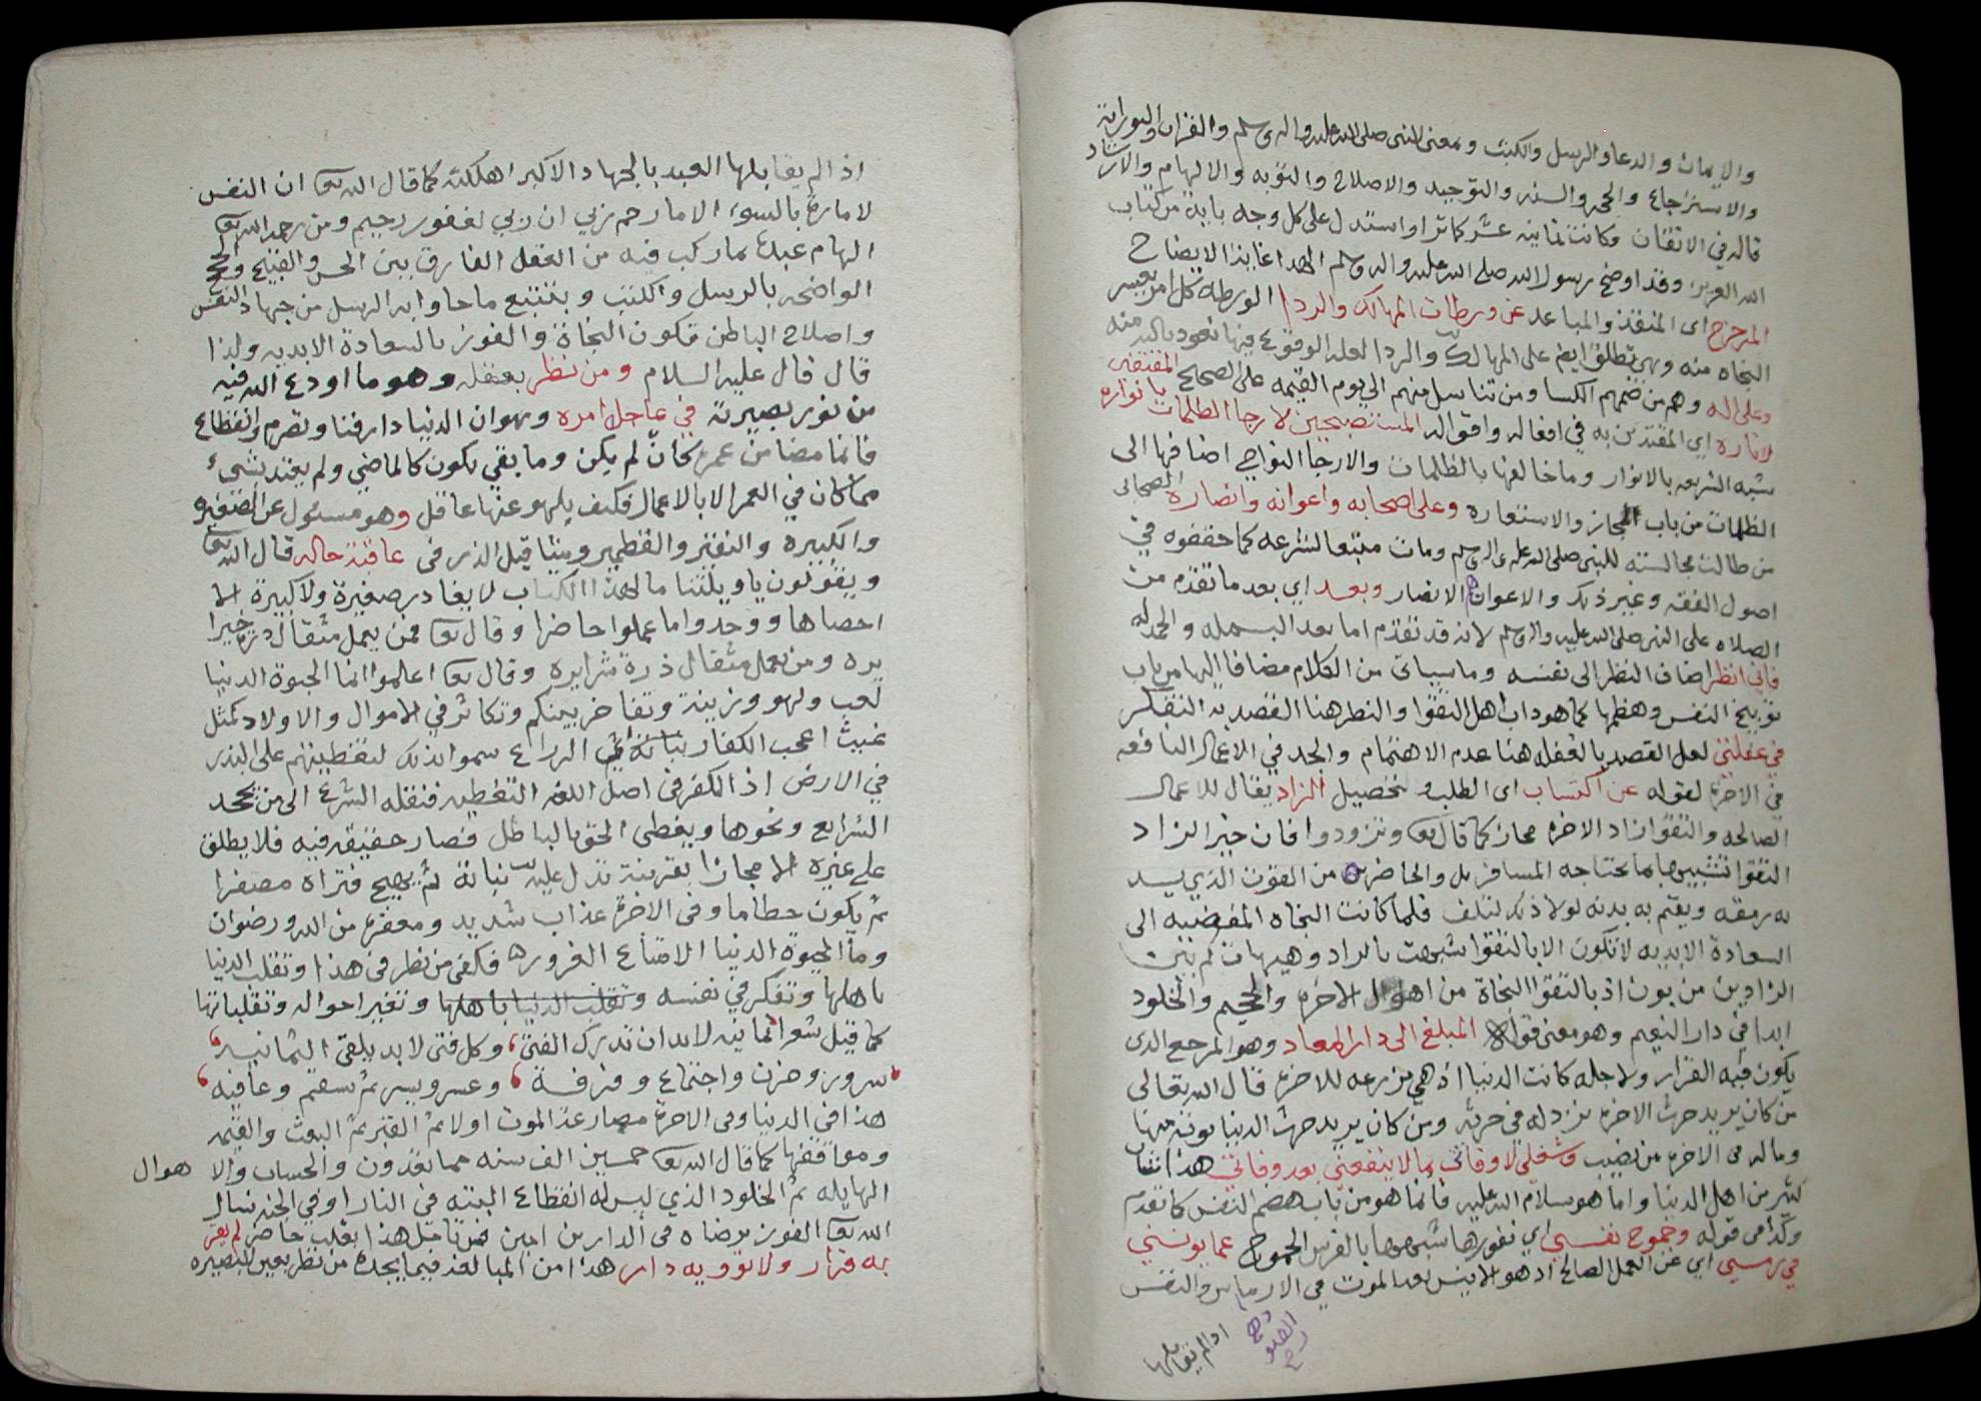 والايمان والدعا والرسل والكتب ومعنى النبي صلى الله عليه واله وسلم والقران والتوراة
والاسترجاع والحجه والسنه والتوحيد والاصلاح والتوبه والالهام والارشاد
قاله في الاتقان فكانت ثمانيه عشر كما ترا واستدل على كل وجه باية من كتاب
الله العزيز وقد اوضح رسول الله صلى الله عليه واله وسلم الهدا غاية الايضاح
المزحزح اى المنقذ والمباعد عن ورطات المهالك والردا الورطه كل امر يعسر
النجاه منه وهى تطلق ايض على المهالك والردا لعله الوقوع فيها نعوذ بالله منه
وعلى اله وهم من ضمهم الكسا ومن تناسل منهم الى يوم القيمه على الصحيح المقتفين
لاثاره اي المقتدين به في افعاله واقواله المستصبحين لارجا الظلمات بانواره
شبه الشريعه بالانوار وما خالفها بالظلمات والارجا النواحي اضافها الى
الظلمات من باب المجاز والاستعاره وعلى اصحابه واعوانه وانصاره الصحابى
من طالت مجالسته للنبي صلى الله عليه واله وسلم ومات متبعا لشرعه كما حققوه في
اصول الفقه وغير ذلك والاعوان الانصار وبعد اي بعد ما تقدم من
الصلاه على النبي صلى الله عليه واله وسلم لانه قد تقدم اما بعد البسمله والحمدله
فاني انظر اضاف النظر الى نفسه وما سياتى من الكلام مضافا اليها من باب
توبيخ النفس وهضمها كما هو داب اهل التقوا والنظر هنا القصد به التفكر
في غفلتي لعل القصد بالغفله هنا عدم الاهتمام والجد في الاعمال النافعه
في الاخره لقوله عن اكتساب اى الطلب وتحصيل الزاد يقال للاعمال
الصالحه والتقوا زاد الاخره مجاز كما قال تع وتزودوا فان خير الزاد
التقوا تشبيها بما يحتاجه المسافر بل والحاضر من القوت الذي يسد
به رمقه ويقيم به بدنه لولا ذلك لتلف فلما كانت النجاه المفضيه الى
السعادة الابديه لا تكون الا بالتقوا شبهت بالزاد وهيهات كم بين
الزادين من بون اذ بالتقوا النجاة من اهوال الاخره والجحيم والخلود
ابدا في دار النعيم وهو معنى قوله المبلغ الى دار المعاد وهو المرجع الذى
يكون فيه القرار ولاجله كانت الدنيا اذ هي مزرعه للاخره قال الله تعالى
من كان يريد حرث الاخره نزد له فى حرثه ومن كان يريد حرث الدنيا نوته منها
وماله فى الاخره من نصيب وشغلي لاوقاتى بما لا ينفعنى بعد وفاتى هذا شان
كثير من اهل الدنيا واما هو سلام الله عليه فانما هو من باب هضم النفس كما تقدم
وكذا فى قوله وجموح نفسي اي نفورها شبهها بالفرس الجموح عما يونسني
في رمسي اي عن العمل الصالح اذ هو الانيس بعد الموت في الارماس والنفس
اذا لم يقابلها
اذا لم يقابلها العبد بالجهاد الاكبر اهلكته كما قال الله تع ان النفس
لامارة بالسوء الا ما رحم ربي ان ربي لغفور رحيم ومن رحمة الله تع
الهام عبده بما ركب فيه من العقل الفارق بين الحسن والقبيح والحجج
الواضحه بالرسل والكتب وبتتبع ما جاوا به الرسل من جهاد النفس
واصلاح الباطن تكون النجاة والفوز بالسعادة الابديه ولذا
قال قال عليه السلام ومن نظر بعقله وهو ما اودع الله فيه
من نور بصيرته في عاجل امره وهو ان الدنيا دار فنا وتصرم وانقطاع
فانما مضا من عمره كان لم يكن وما بقي يكون كالماضي ولم يعتد بشيء
مما كان في العمر الا بالاعمال فكيف يلهو عنها عاقل وهو مسئول عن الصغيره
والكبيره والنقير والقطمير ومثاقيل الذر فى عاقبة حاله قال الله تع
ويقولون ياويلتنا مال هذا الكتاب لا يغادر صغيرة ولا كبيرة الا
احصاها ووجدوا ما عملوا حاضرا وقال تع فمن يعمل مثقال ذرة خيرا
يره ومن يعمل مثقال ذرة شرا يره وقال تع اعلموا انما الحيوة الدنيا
لعب ولهو وزينة وتفاخر بينكم وتكاثر في الاموال والاولاد كمثل
غيث اعجب الكفار نباته الزراع سموا بذلك لتغطيتهم على البذر
في الارض اذ الكفر فى اصل اللغه التغطيه فنقله الشرع الى من يجحد
الشرايع ونحوها ويغطى الحق بالباطل فصار حقيقه فيه فلا يطلق
على غيره الا مجازا بقرينة تدل عليه نباته ثم يهيج فتراه مصفرا
ثم يكون حطاما وفى الاخرة عذاب شديد ومغفرة من الله ورضوان
وما الحيوة الدنيا الا متاع الغرور فكفى من نظر فى هذا وتقلب الدنيا
باهلها وتفكر في نفسه وتقلب الدنيا باهلها وتغير احواله وتقلباتها
كما قيل شعر ثمانيه لابد ان تدرك الفتى وكل فتى لابد يلقى الثمانيه
سرور وحزن واجتماع وفرقة وعسر ويسر ثم سقم وعافيه
هذا فى الدنيا وفى الاخرة مصارعة الموت اولا ثم القبر ثم البعث والقيمه
ومواقفها كما قال الله تع خمسين الف سنه مما تعدون والحساب والاهوال
الهايله ثم الخلود الذي ليس له انقطاع البته فى النار او في الجنه نسال
الله تع الفوز برضاه فى الدارين امين فمن تامل هذا بقلب حاضر لم يقر
به قرار ولا تؤويه دار هذا من المبالغه فيما يجده من نظر بعين البصيره